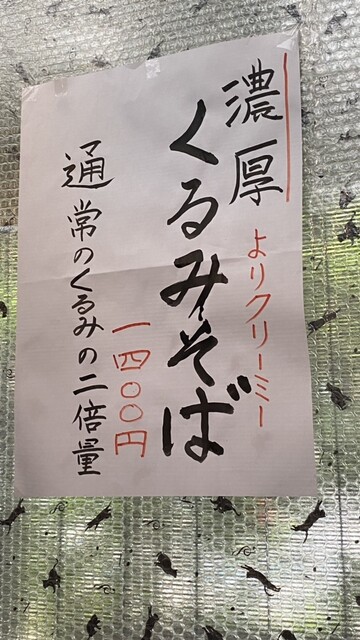 濃厚
くるみそば
よりクリーミー
一四〇〇円
通常のくるみの二倍量